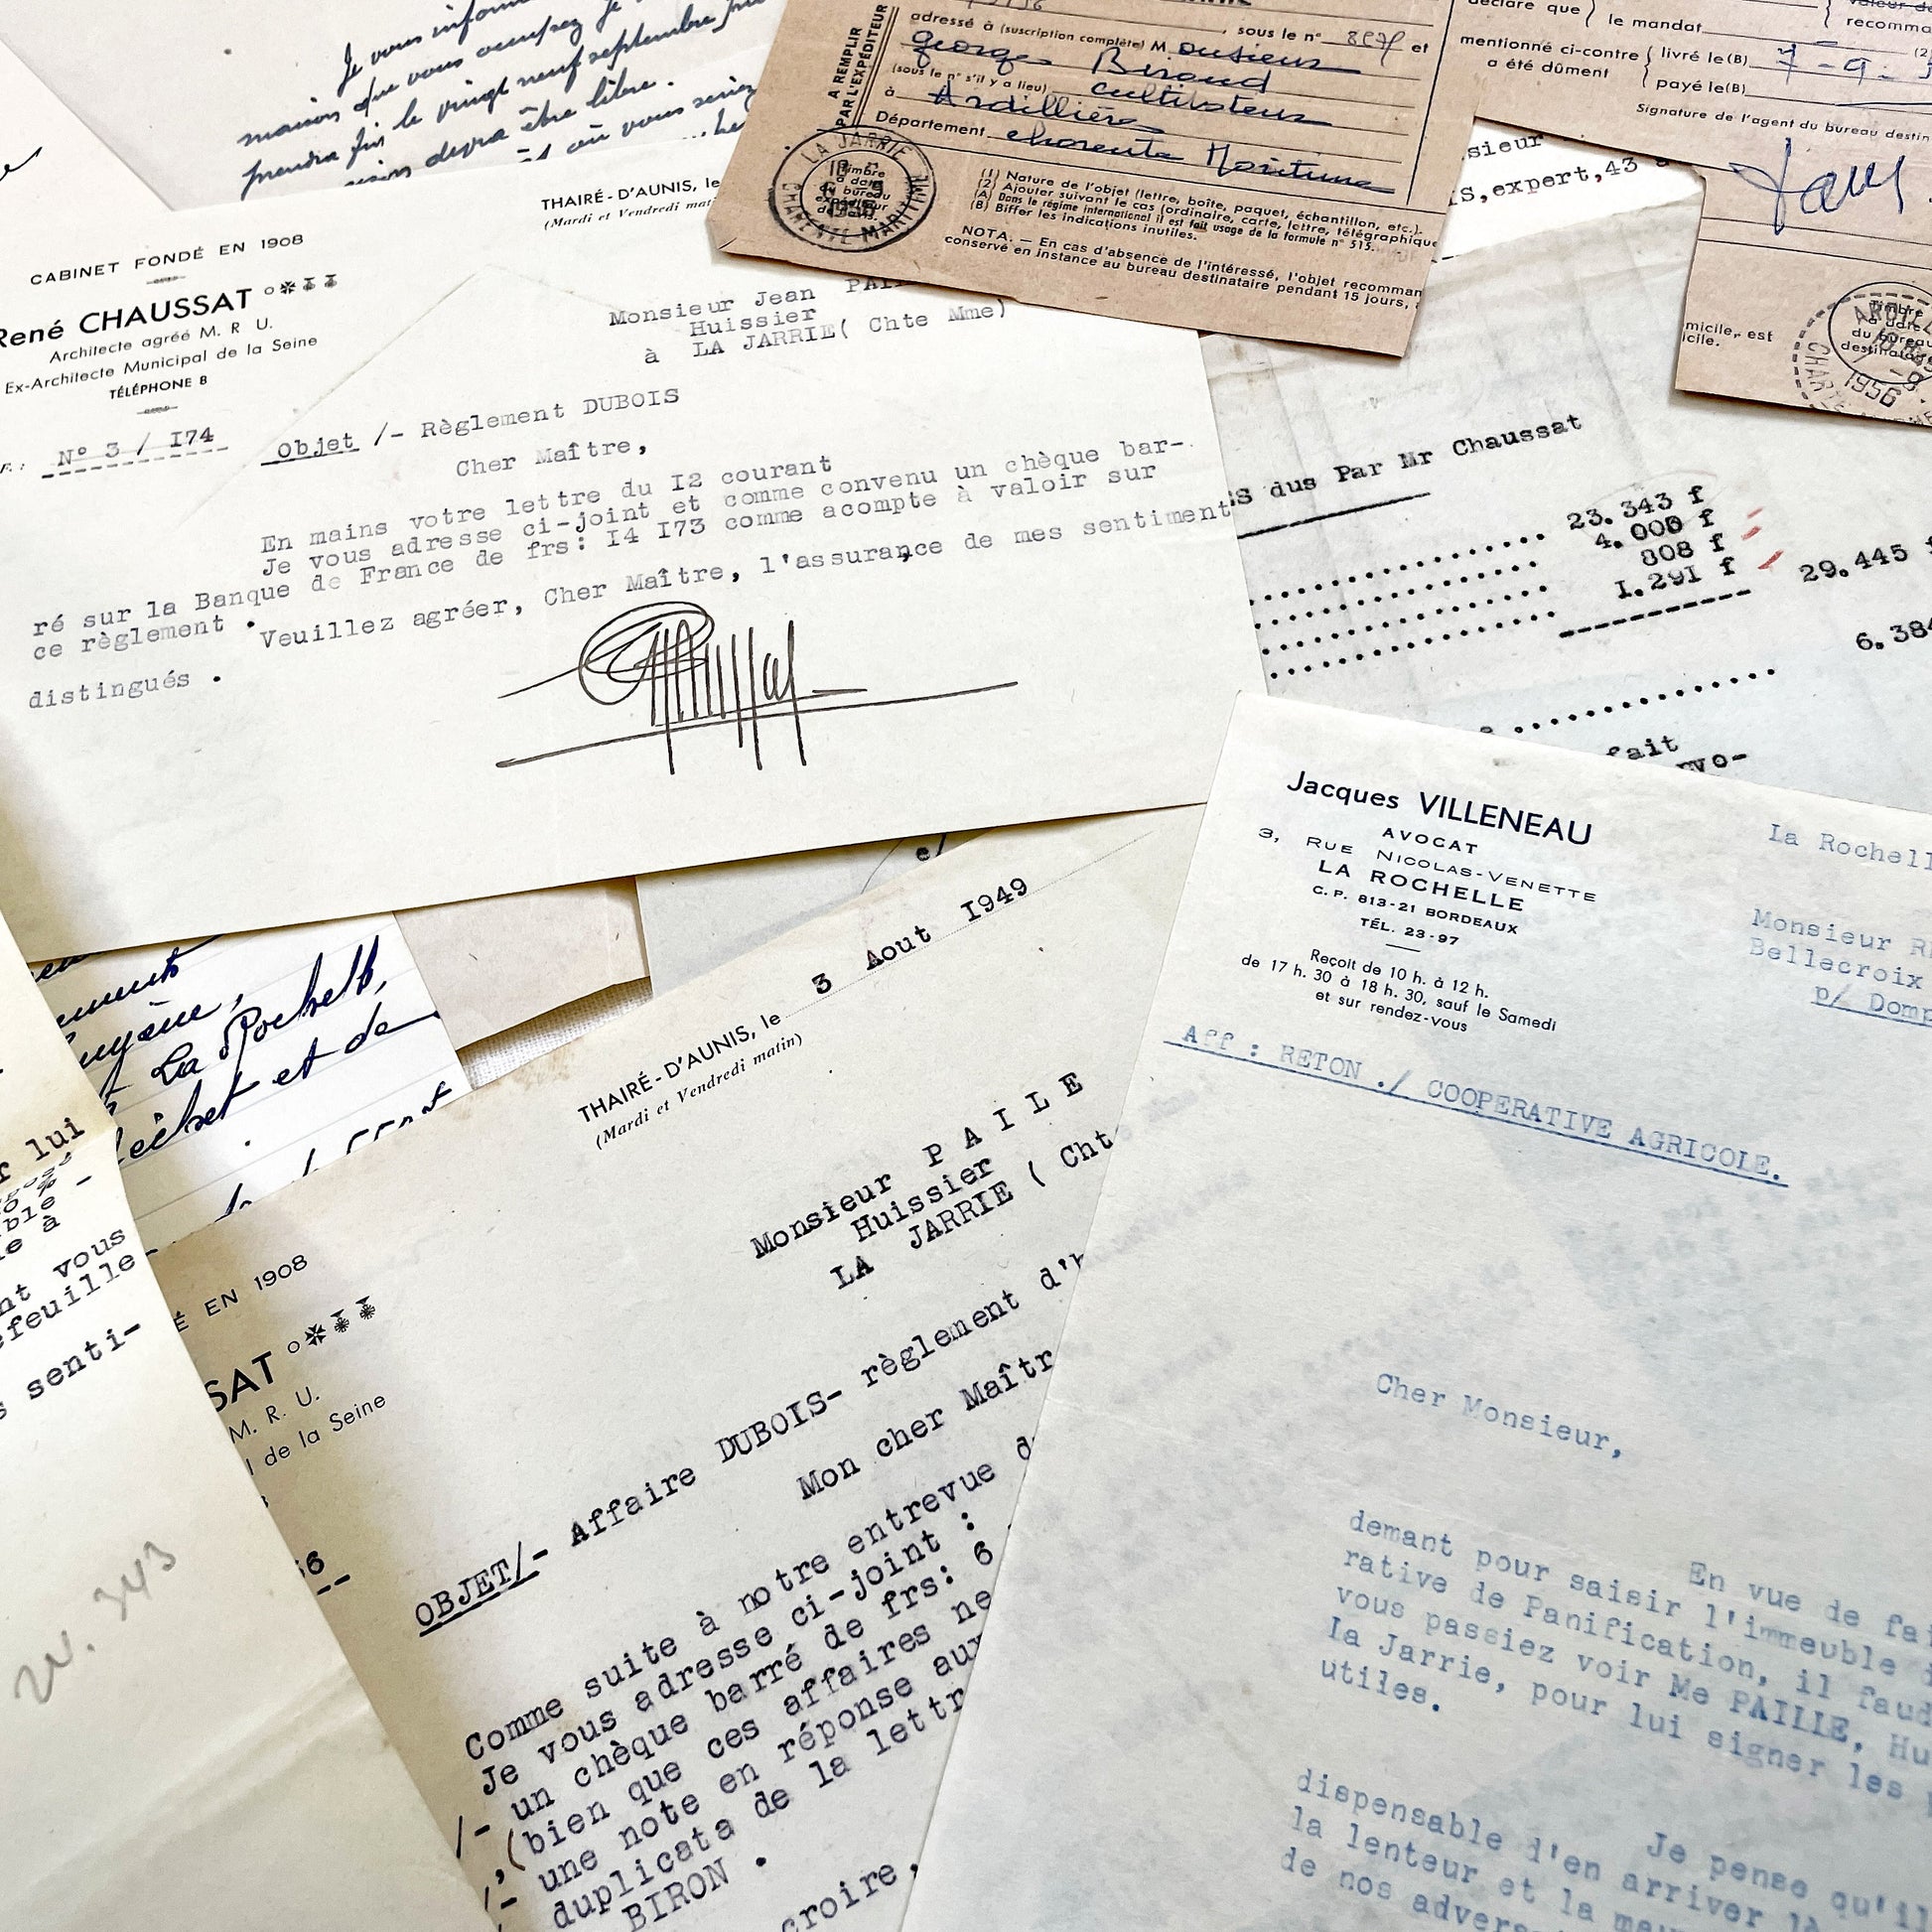 Je vous inform
maison que vous occupez je
prendra fin le vingt neuf septembre
maison devra être libre.
où vous seriez
THAIRÉ-D'AUNIS, le
(Mardi et Vendredi mati
CABINET FONDÉ EN 1908
René CHAUSSAT
Architecte agréé M. R. U.
Ex-Architecte Municipal de la Seine
TÉLÉPHONE 8
N° 3 / I74
Monsieur Jean PAI
Huissier
à LA JARRIE( Chte Mme)
Objet /- Règlement DUBOIS
Cher Maître,
En mains votre lettre du I2 courant
Je vous adresse ci-joint et comme convenu un chèque bar-
ré sur la Banque de France de frs: I4 I73 comme acompte à valoir sur
ce règlement .
Veuillez agréer, Cher Maître, l'assurance de mes sentiment
distingués .
A REMPLIR
PAR L'EXPÉDITEUR
, sous le n° et
adressé à (suscription complète) M onsieur
georges Biraud
(sous le n° s'il y a lieu) cultivateur
à Ardillières
Département charente Maritime
LA JARRIE
CHARENTE MARITIME
Timbre
à date
du bureau
(1) Nature de l'objet (lettre, boîte, paquet, échantillon, etc.).
(2) Ajouter suivant le cas (ordinaire, carte, lettre, télégraphique
(A) Dans le régime international il est fait usage de la formule n° 515.
(B) Biffer les indications inutiles.
NOTA. — En cas d'absence de l'intéressé, l'objet recomman
conservé en instance au bureau destinataire pendant 15 jours,
déclare que
le mandat
recomma
mentionné ci-contre livré le(B) 7-9-
a été dûment payé le(B)
Signature de l'agent du bureau destin
micile, est
icile.
Timbre
à date
du bureau
1956
sieur
S,expert,43
S dus Par Mr Chaussat
23.343 f
4.000 f
808 f
1.291 f
29.445 f
6.384
fait
vo-
Jacques VILLENEAU
AVOCAT
3, RUE NICOLAS-VENETTE
LA ROCHELLE
C.P. 813-21 BORDEAUX
TÉL. 23-97
Reçoit de 10 h. à 12 h.
de 17 h. 30 à 18 h. 30, sauf le Samedi
et sur rendez-vous
La Rochell
Monsieur R
Bellecroix
p/ Domp
Aff : RETON ./ COOPERATIVE AGRICOLE.
Cher Monsieur,
En vue de fai
demant pour saisir l'immeuble
rative de Panification, il faud
vous passiez voir Me PAILLE, Hu
La Jarrie, pour lui signer les
utiles.
Je pense qu'il
dispensable d'en arriver là
la lenteur et la mau
de nos advers
La Rochelle,
et de
3 Aout I949
THAIRÉ-D'AUNIS, le
(Mardi et Vendredi matin)
É EN 1908
SAT
M. R. U.
de la Seine
6
Monsieur P A I L E
Huissier
LA JARRIE ( Cht
OBJET/- Affaire DUBOIS- règlement d'
Mon cher Maîtr
Comme suite à notre entrevue d
Je vous adresse ci-joint :
/- un chèque barré de frs: 6
(bien que ces affaires ne
/- une note en réponse aux
duplicata de la lettr
BIRON .
croire,
r lui
%
ble -
e à
nt vous
efeuille
s senti-
343